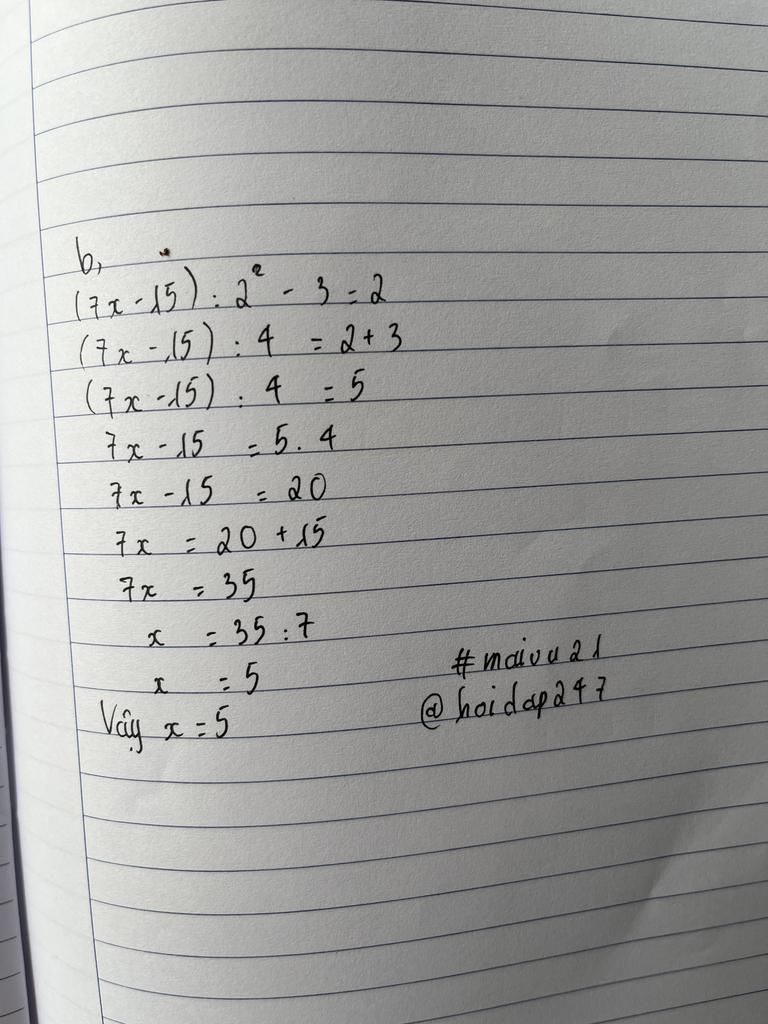 b,
(7x - 15) : 2² - 3 = 2
(7x - 15) : 4 = 2 + 3
(7x - 15) : 4 = 5
7x - 15 = 5 . 4
7x - 15 = 20
7x = 20 + 15
7x = 35
x = 35 : 7
x = 5
Vậy x = 5
#maivu21
@hoidap247